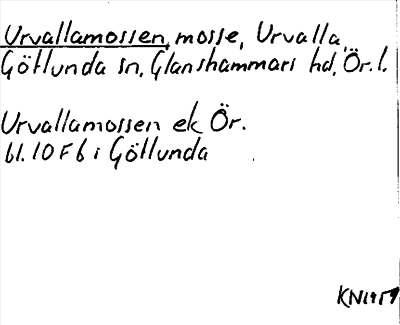 Urvallamossen, mosse, Urvalla,
Götlunda sn, Glanshammars hd, Ör. l.
Urvallamossen ek Ör.
bl. 10 F 6 i Götlunda